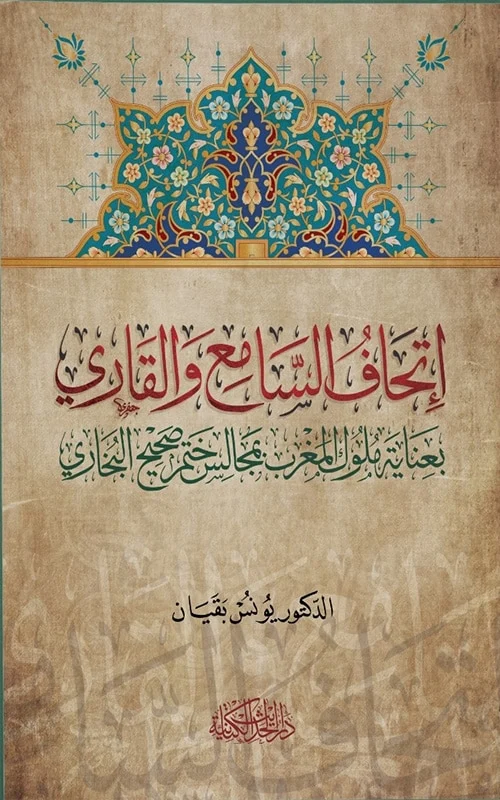 إتحاف السامع والقاري
بعناية ملوك المغرب بمجالس ختم صحيح البخاري
الدكتور يونس بقيان
دار الحديث الكتانية